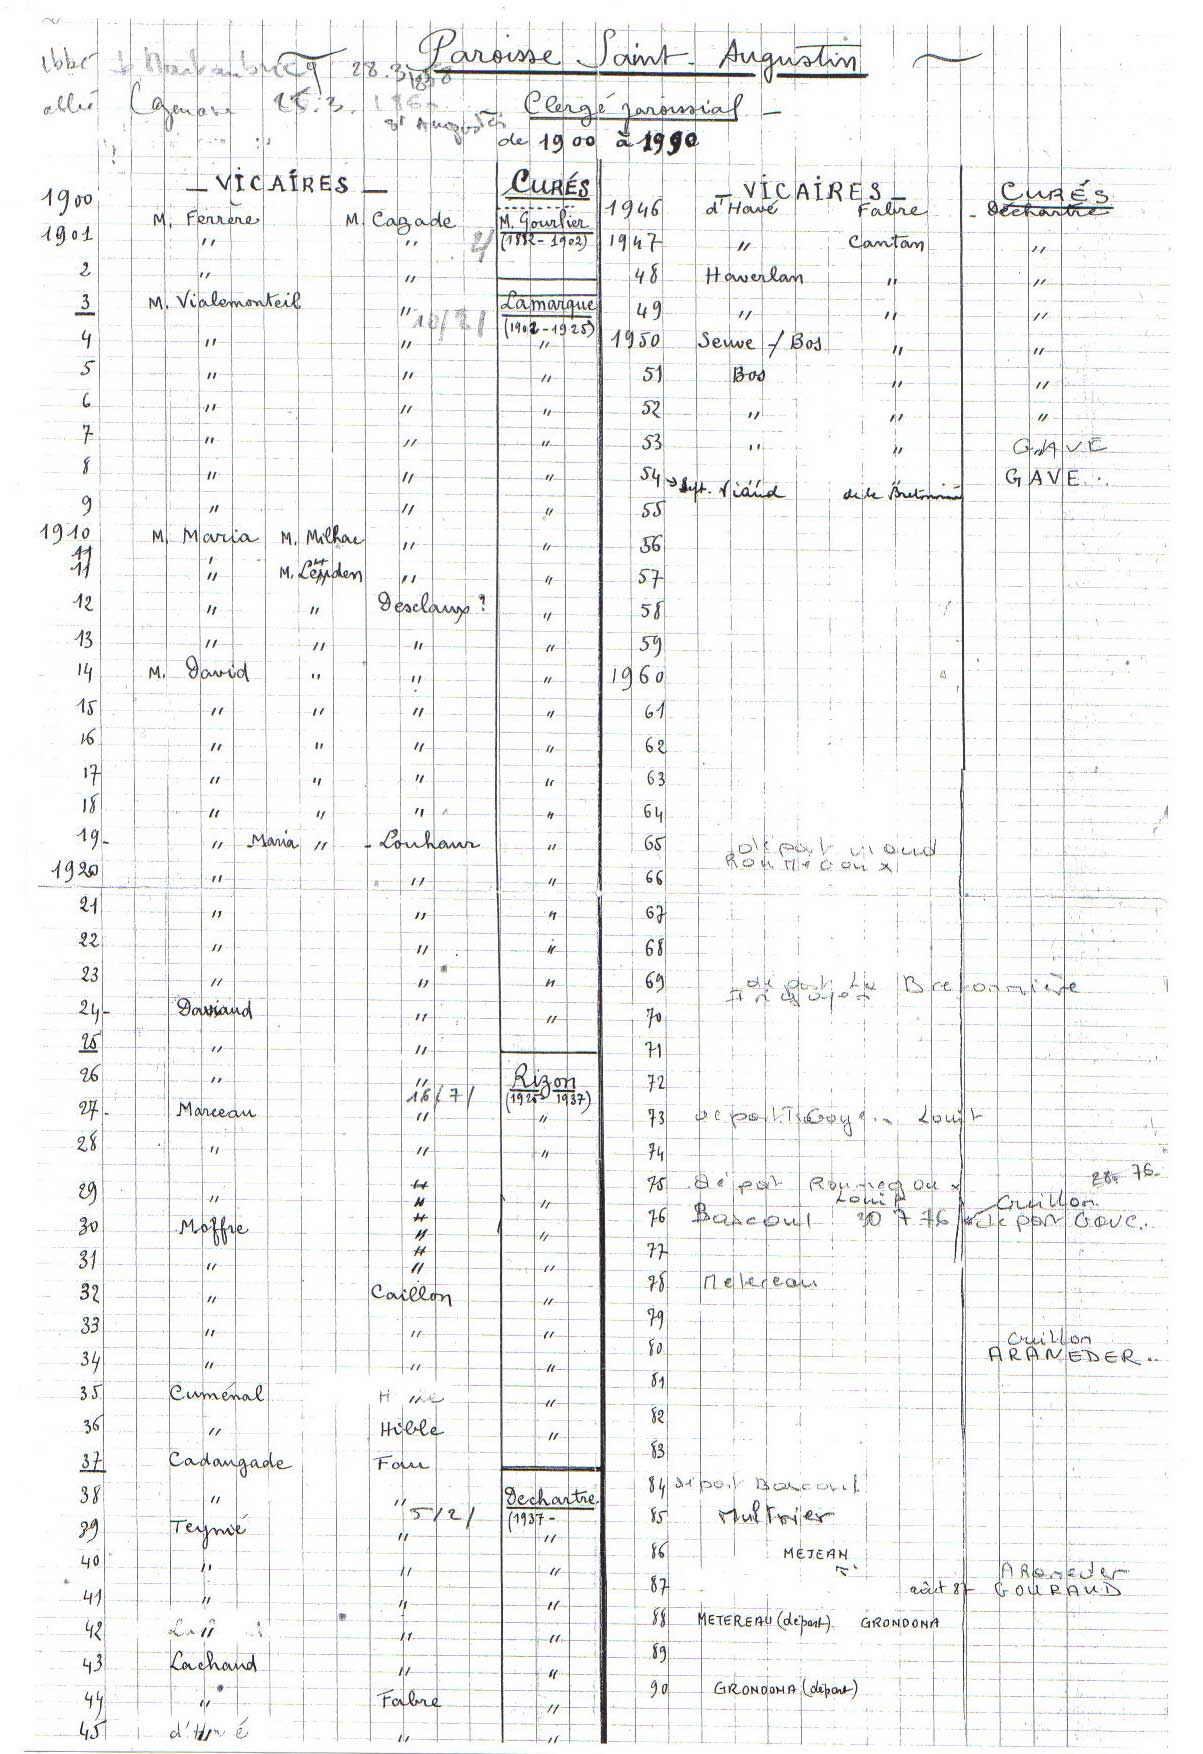 Paroisse Saint-Augustin
abbé 28.3
abbé Cazenave 3. St Augustin
Clergé paroissial -
de 1900 à 1990
- VICAIRES - CURÉS
1900 M. Ferrère M. Cazade M. Gourlier
1901 " " (1882-1902)
2 " "
3 M. Vialemonteil " Lamarque
10/2/ (1902-1925)
4 " " "
5 " " "
6 " " "
7 " " "
8 " " "
9 " " "
1910 M. Maria M. Milhac " "
11
11 " M. Leuden " "
12 " " Desclaux? "
13 " " " "
14 M. David " " "
15 " " " "
16 " " " "
17 " " " "
18 " " " "
19- " Maria " - Louhaur "
1920 " " "
21 " " "
22 " " "
23 " " "
24- Daviaud " "
25 " "
26 " " Rizon
16/7/ (1925 1937)
27- Marceau " "
28 " " "
29 " " "
30 Moffre " "
31 " " "
32 " Caillon "
33 " " "
34 " " "
35 Cuménal "
36 " Hible "
37 Cadangade Fau
38 " " Dechartre
5/2/ (1937-
39 Teynié " "
40 " " "
41 " " "
42 " "
43 Lachaud " "
44 " Fabre "
45 " "
- VICAIRES - CURÉS
1946 d'Havé Fabre - Dechartre
1947 " Cantan "
48 Haverlan " "
49 " " "
1950 Seuve / Bos " "
51 Bos " "
52 " " "
53 " " GAVE
54 → Sept. Viaud de la Bretonnière GAVE..
55
56
57
58
59
1960
61
62
63
64
65 départ viaud
ROUMEGOUX
66
67
68
69 départ La Bretonnière
70
71
72
73 départ Louit
74
75 Départ Roumegoux 28- 76-
Louit Guillon
76 Bascoul 30 7 76 départ GAVE..
77
78 Metereau
79
80 Guillon
ARANEDER..
81
82
83
84 départ Bascoul
85 Multrier
86 MEJEAN
Araneder
87 août 87 GOURAUD
88 METEREAU (départ). GRONDONA
89
90 GRONDONA (départ)